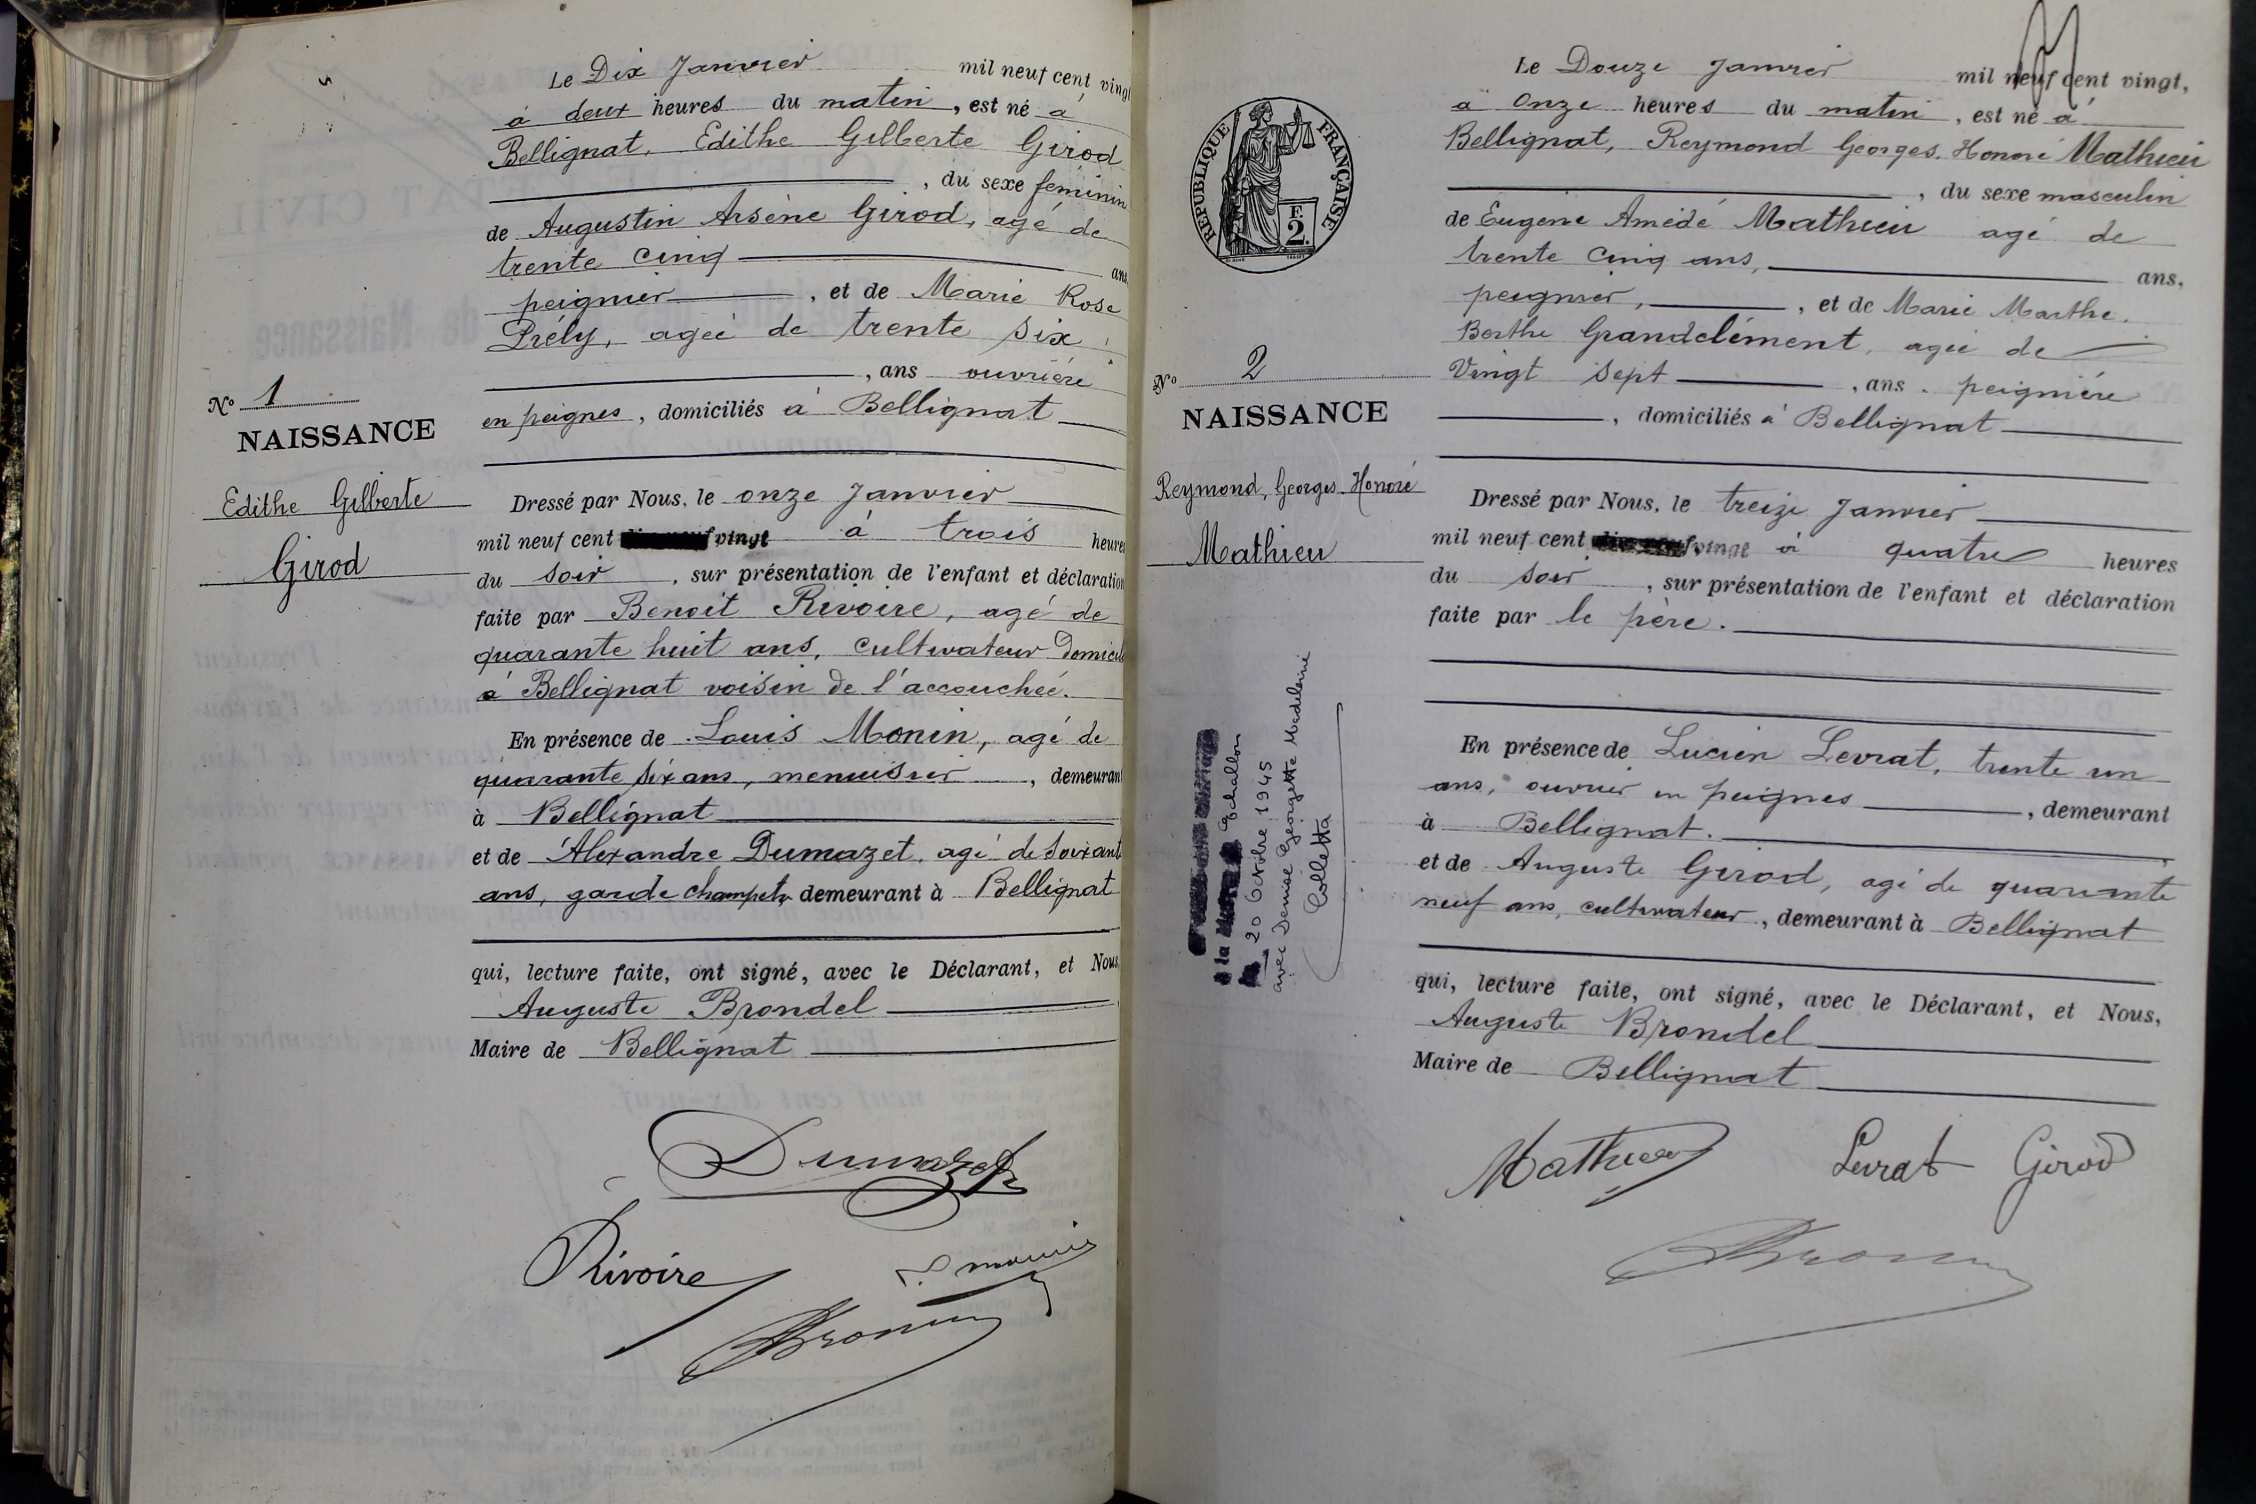 Le Dix Janvier mil neuf cent vingt
à deux heures du matin, est né à
Bellignat, Edithe Gilberte Girod
, du sexe feminin
de Augustin Arsène Girod, agé de
trente cinq ans
peignier, et de Marie Rose
Prély, agée de trente six
, ans ouvrière
en peignes, domiciliés à Bellignat
Nº 1
NAISSANCE
Edithe Gilberte
Girod
Dressé par Nous, le onze Janvier
mil neuf cent vingt à trois heures
du soir, sur présentation de l'enfant et déclaration
faite par Benoit Rivoire, agé de
quarante huit ans, cultivateur Domicilié
à Bellignat voisin de l'accouchée.
En présence de Louis Monin, agé de
quarante six ans, menuisier, demeurant
à Bellignat
et de Alexandre Dumazet, agé de soixante
ans, garde champetre demeurant à Bellignat
qui, lecture faite, ont signé, avec le Déclarant, et Nous,
Auguste Brondel
Maire de Bellignat
Dumazet
Rivoire
Le Douze Janvier mil neuf cent vingt,
à Onze heures du matin, est né à
Bellignat, Reymond Georges. Honoré Mathieu
, du sexe masculin
de Eugene Amédé Mathieu agé de
trente cinq ans, ans,
peignier, , et de Marie Marthe.
Berthe Grandclément, agée de
Vingt sept, ans. peignière
, domiciliés à Bellignat
RÉPUBLIQUE FRANÇAISE
F.
2.
Nº 2
NAISSANCE
Reymond, Georges. Honoré
Mathieu
à la Echallon
20 Octobre 1945
avec Denise Georgette Madeleine
Colletta
Dressé par Nous, le treize Janvier
mil neuf cent vingt à quatre heures
du soir, sur présentation de l'enfant et déclaration
faite par le père.
En présence de Lucien Levrat, trente un
ans, ouvrier en peignes, demeurant
à Bellignat.
et de Auguste Girod, agé de quarante
neuf ans, cultivateur, demeurant à Bellignat
qui, lecture faite, ont signé, avec le Déclarant, et Nous,
Auguste Brondel
Maire de Bellignat
Mathieu Levrat Girod